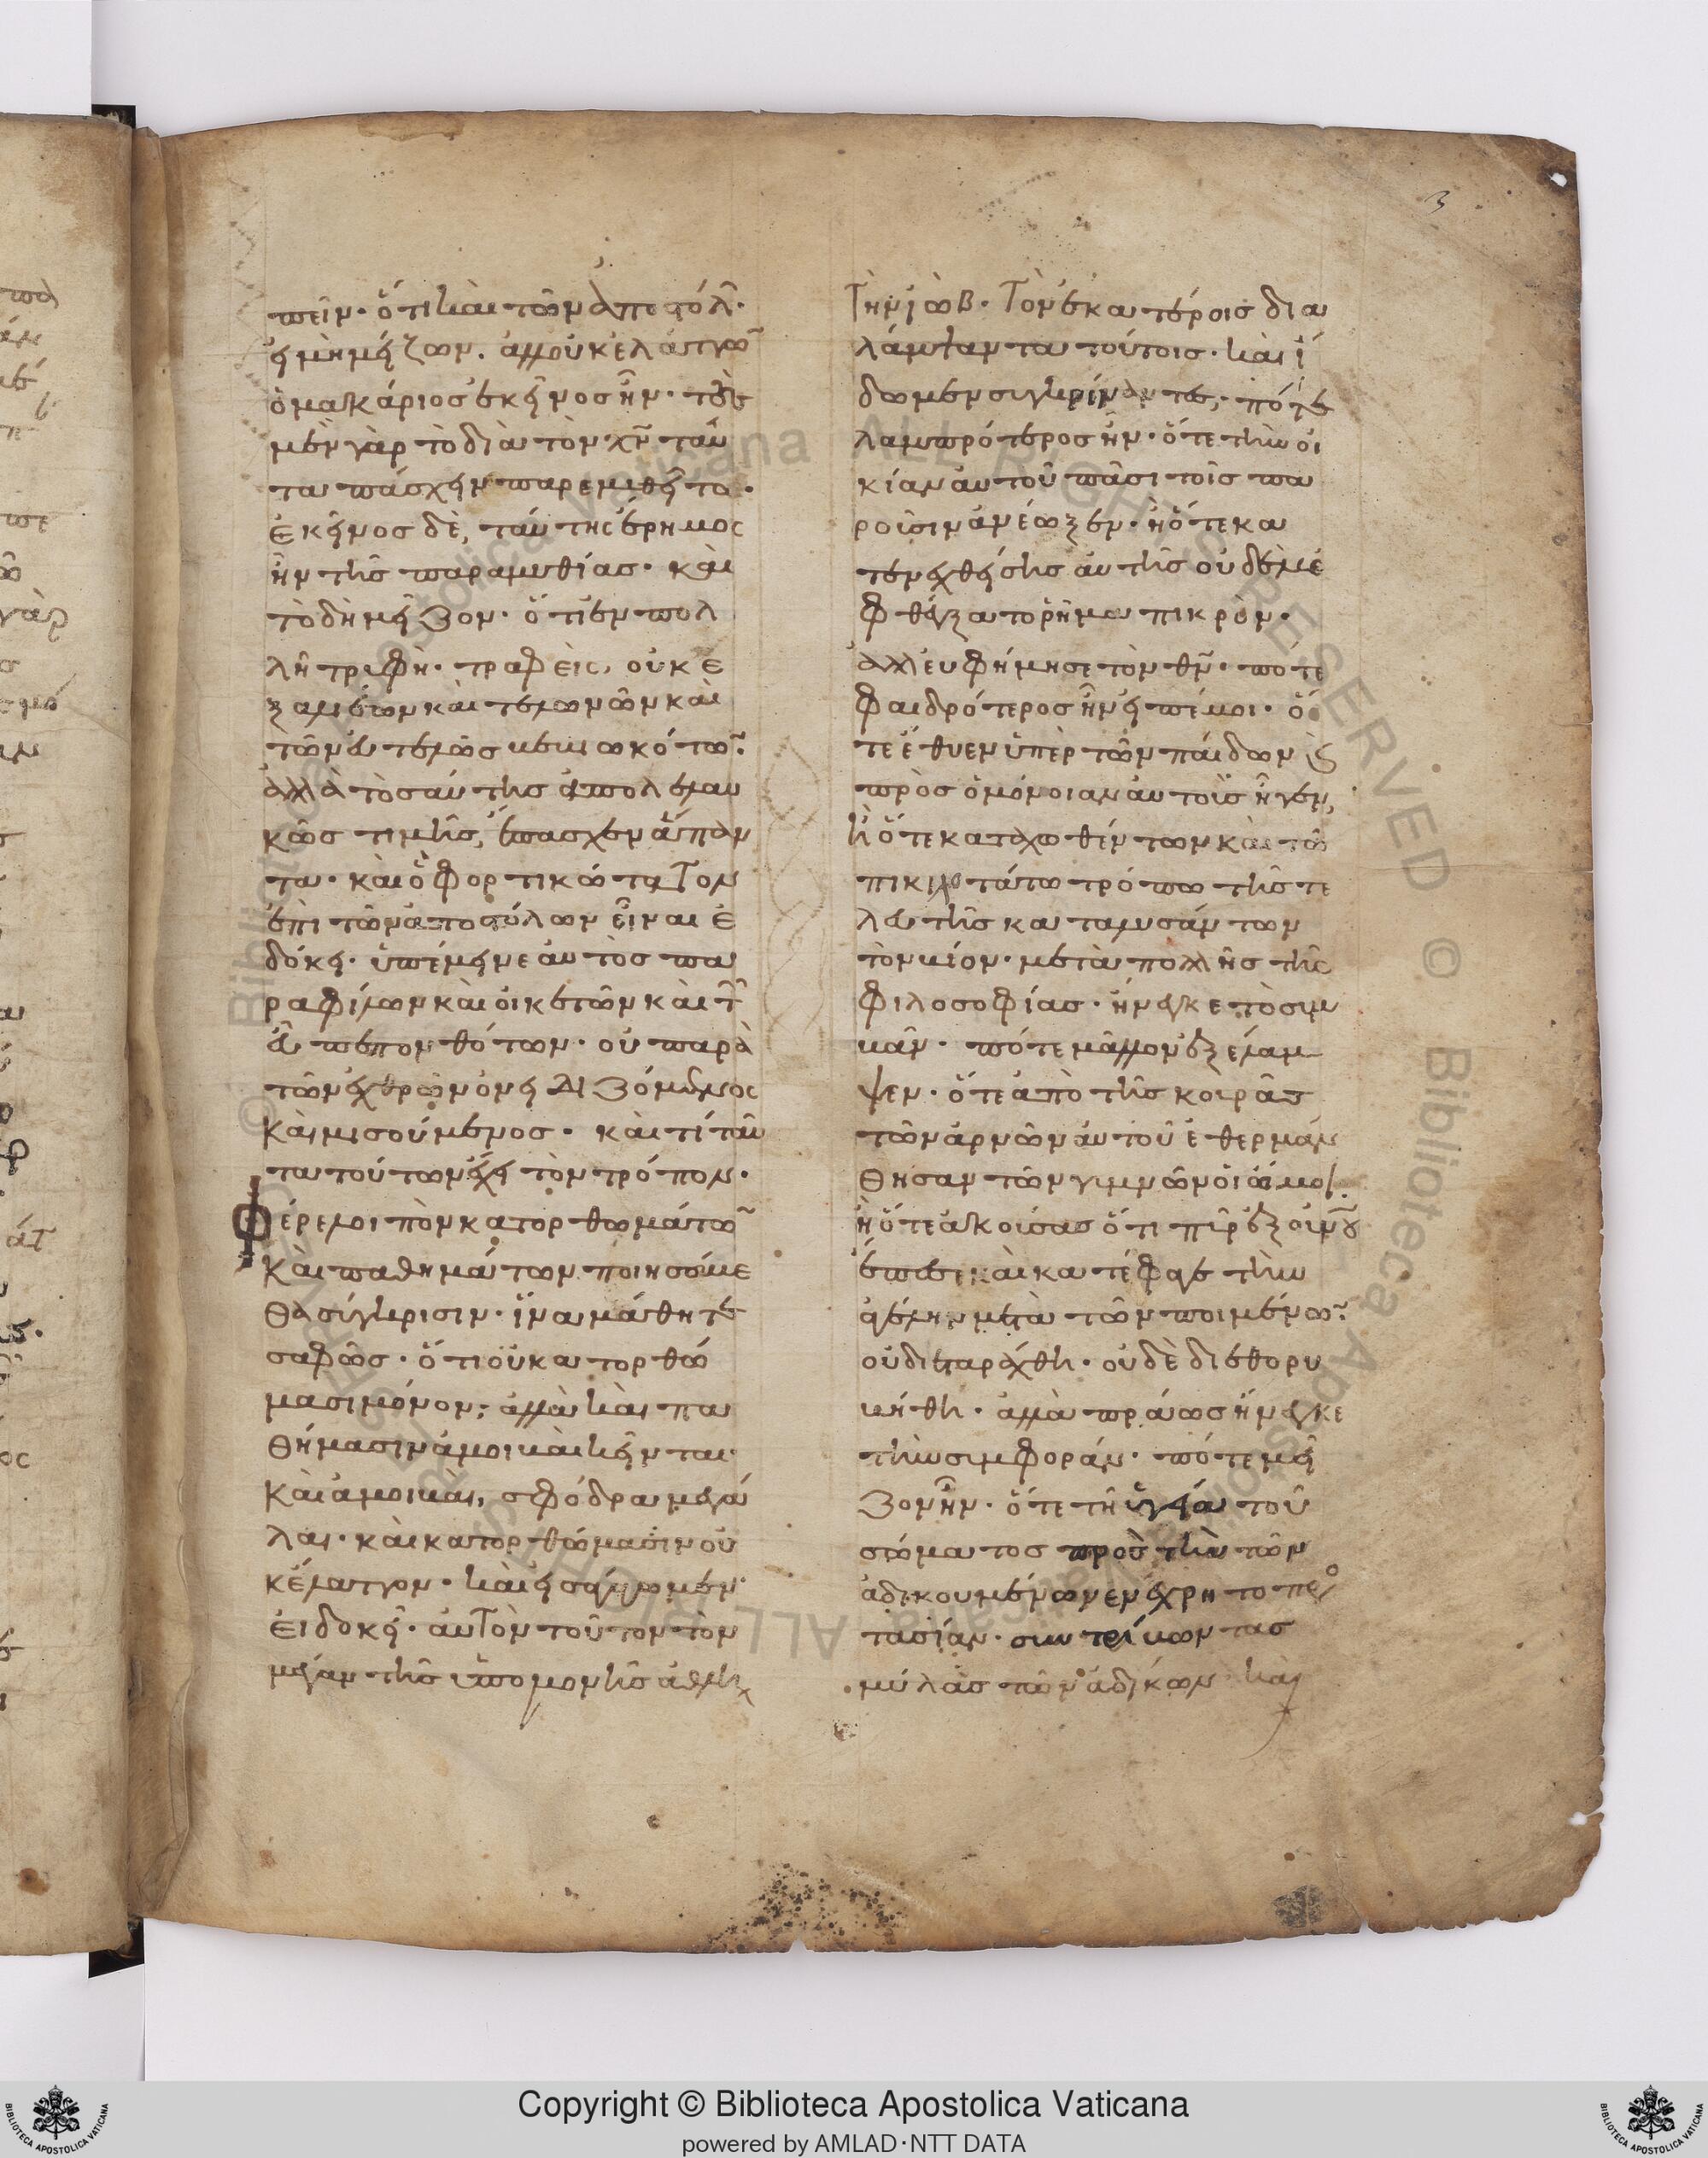 3
πεῖν· ὅτι καὶ τῶν ἀποστόλ·
εἰ μὴ μείζων. ἀλλ' οὐκ ἐλάττω̃
ὁ μακάριος ἐκεῖνος ἦν· τοὺς
μὲν γὰρ τὸ διὰ τὸν χν̃ ταῦ
τα πάσχειν παρεμυθεῖτο·
ἐκεῖνος δὲ, ταύτης ἔρημος
ἦν τῆς παραμυθίας· καὶ
τὸ δὴ μεῖζον· ὅτι ἐν πολ
λῆ τρυφῆ· τραφεὶς, οὐκ ἐ
ξ ἁλιέων καὶ τελωνῶν καὶ
τῶν εὐτελῶς βεβιωκότω̃·
ἀλλὰ τοσαύτης ἀπολελαυ
κῶς τιμῆς, ἔπασχεν ἅπαν
τα· καὶ ὃ φορτικώτατον
ἐπὶ τῶν ἀποστόλων εἶναι ἐ
δόκει· ὑπέμεινε αὐτὸς πα
ρα φίλων καὶ οἰκετῶν καὶ τ̃
εὖ πεπονθότων· οὐ παρὰ
τῶν ἐχθρῶν ὀνειδιζόμενος
καὶ μισούμενος· καὶ τί ταῦ
τα τούτων ἔχει τὸν τρόπον·
Φέρε λοιπὸν κατορθωμάτω̃
καὶ παθημάτων ποιησόμε
θα σύγκρισιν· ἵνα μάθητε
σαφῶς· ὅτι οὐ κατορθώ
μασι μόνον, ἀλλὰ καὶ πα
θήμασιν ἀμοιβαὶ κεῖνται·
καὶ ἀμοιβαὶ, σφόδρα μεγά
λαι· καὶ κατορθώμασιν οὐ
κ ἔλαττον· καὶ εἰσάγωμεν·
εἰ δοκεῖ· αὐτὸν τοῦτον τὸν
μέγαν τῆς ὑπομονῆς ἀθλη
τὴν ἰὼβ· τὸν ἑκατέροις δια
λάμψαντα τούτοις· καὶ ἴ
δωμεν συγκρίναντες, πότε
λαμπρότερος ἦν· ὅτε τὴν οἰ
κίαν αὐτοῦ πᾶσι τοῖς πα
ροῦσιν ἀνέωξεν· ἢ ὅτε κα
τενεχθείσης αὐτῆς οὐδὲν ἐ
φθέγξατο ῥῆμα πικρὸν·
ἀλλ' εὐφήμησε τὸν θν̃· πότε
φαιδρότερος ἦν εἰπέ μοι· ὅ
τε ἔθυεν ὑπὲρ τῶν παίδων κ(αὶ)
πρὸς ὁμόνοιαν αὐτοῖς ἦγεν,
ἢ ὅτε καταχωσθέντων καὶ τῶ
πικροτάτω τρόπω τῆς τε
λευτῆς καταλυσάντων
τὸν βίον· μετὰ πολλῆς τῆς
φιλοσοφίας· ἤνεγκε τὸ συμ
βὰν· πότε μᾶλλον ἐξέλαμ
ψεν· ὅτε ἀπὸ τῆς κουρᾶς
τῶν ἀρνῶν αὐτοῦ ἐθερμάν
θησαν τῶν γυμνῶν οἱ ὦμοι.
ἢ ὅτε ἀκούσας ὅτι πῦρ ἐξ οὐν̃ου
ἔπεσε καὶ κατέφαγε τὴν
ἀγέλην μετὰ τῶν ποιμένω̃·
οὐδ' ἐταράχθη· οὐδὲ διεθορυ
βήθη· ἀλλὰ πράως ἤνεγκε
τὴν συμφοράν· πότε μεῖ
ζον ἦν· ὅτε τῆ ὑγεία τοῦ
σώματος πρὸς τὴν τῶν
ἀδικουμένων ἐνέχρητο προ
στασίαν· συντρίβων τὰς
μύλας τῶν ἀδίκων καὶ
Copyright © Biblioteca Apostolica Vaticana
powered by AMLAD·NTT DATA